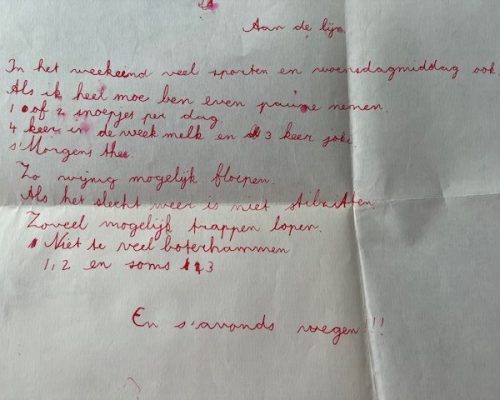 Aan de lijn
In het weekeind veel sporten en woensdagmiddag ook
Als ik heel moe ben even pauze nemen.
1 of 2 snoepjes per dag
4 keer in de week melk en 3 keer joki.
s'Morgens thee.
Zo wijnig mogelijk floepen.
Als het slecht weer is niet stilzitten
Zoveel mogelijk trappen lopen.
Niet te veel boterhammen
1, 2 en soms 3
En s'avonds wegen!!!